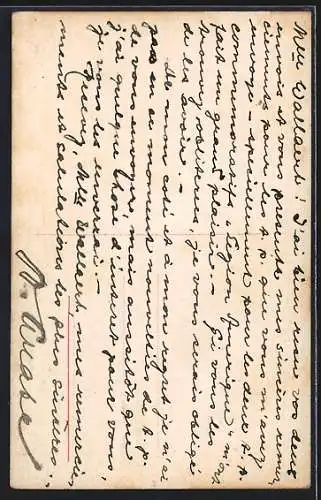 Mlle Wallaert! J'ai bien reçu vos deux
envois et vous présente mes sincères remer-
ciments pour les t. p. que vous m'avez
envoyé - spécialement pour les deux t. p.
commémoratifs "Légion Amérique" m'a
fait un grand plaisir. - Si vous les
trouvez oblitérés, je vous serais obligé
de les avoir. -
De mon coté et à mon regret je n'ai
pas en ce moment nouvelles de t. p.
de vous envoyer, mais aussitôt que
j'ai quelque chose d'interet pour vous,
je vous les enverrai. -
Agréez, Mlle Wallaert, mes remercie-
ments et salutations les plus sincères.